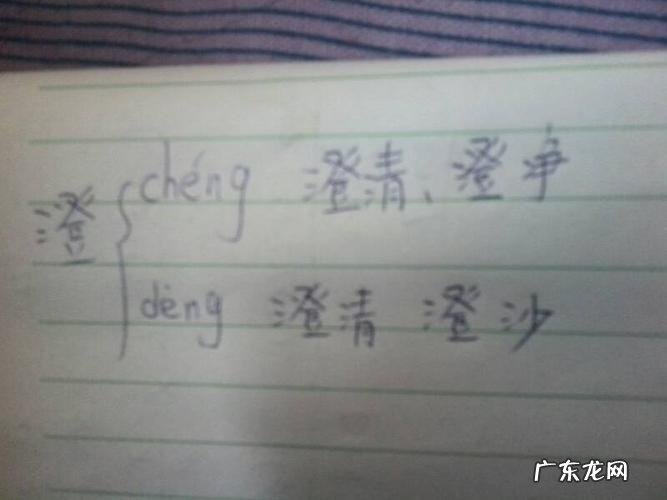 澄
chéng 澄清、澄净
dèng 澄清 澄沙
广东龙网